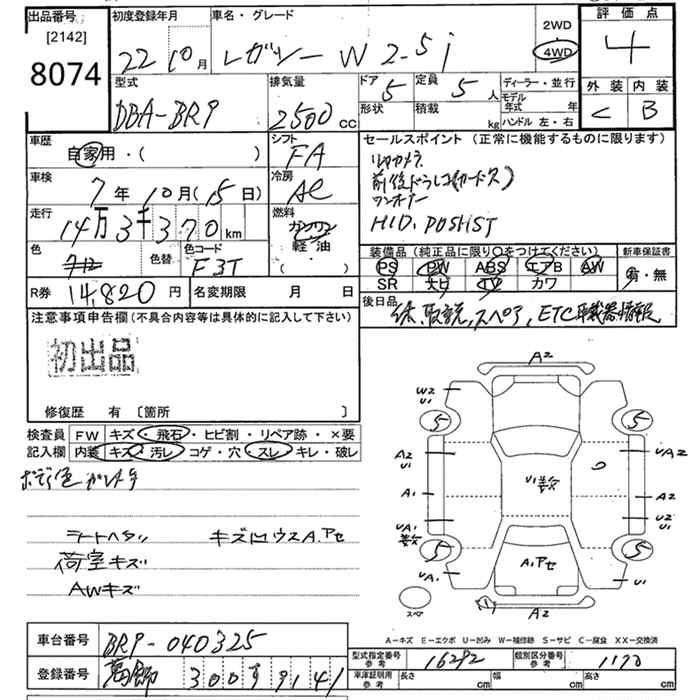 出品番号 [2142] 8074
初度登録年月 22 10月
車名・グレード レガシー W 2.5i
2WD 4WD
評価点 4
外装 C 内装 B
型式 DBA-BR9
排気量 2500 CC
ドア 5 形状
定員 5 人 積載 kg
ディーラー・並行
モデル年式 年
ハンドル 左・右
車歴 自家用・( )
シフト FA
車検 7年 10月(15日)
冷房 AC
走行 14万3千370km
燃料 ガソリン 軽油・( )
色 色替 色コード F3T
R券 14,820円
名変期限 月 日
セールスポイント (正常に機能するものに限ります)
リヤカメラ
前後ドラレコ(カードス)
ワンオーナー
HID. Pシスト
装備品 (純正品に限り〇をつけてください)
PS PW ABS エアB AW
SR ナビ TV カワ
新車保証書 有・無
後日品 保、取説、スペア、ETC車載器情報
注意事項申告欄(不具合内容等は具体的に記入して下さい)
初出品
修復歴 有 〔箇所 〕
検査員記入欄
FW キズ・飛石・ヒビ割・リペア跡・×要
内装 キズ・汚レ・コゲ・穴・スレ・キレ・破レ
シートヘタリ
荷室キズ
AWキズ
A2
W2
U1
5
5
A2
U1
UA2
U1
A1
A2
UA1
U2
5
A.アセ
5
UA1
U1
A2
スペア
A-キズ E-エクボ U-凹み W-補修跡 S-サビ C-腐食 XX-交換済
車台番号 BR9-040325
登録番号 葛飾 300 す 9141
型式指定番号 参考 16292
類別区分番号 参考 1170
車庫証明用 参考 長さ cm 幅 cm 高さ cm